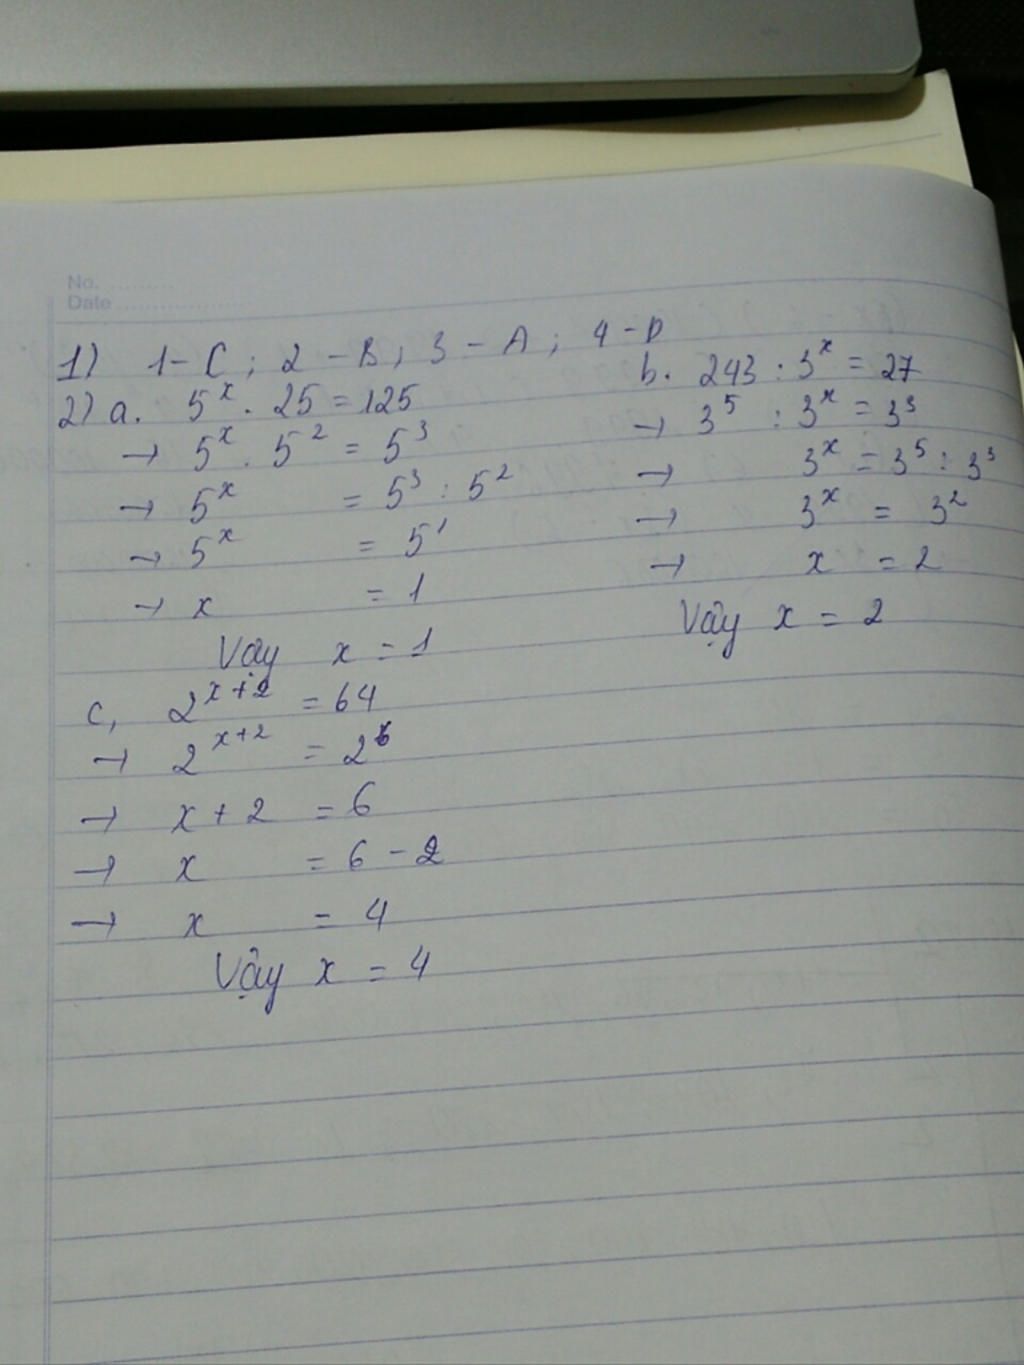 No. ..........
Date ....................
1) 1-C ; 2 - B ; 3 - A ; 4 - D
2) a. 5^x . 25 = 125
→ 5^x . 5^2 = 5^3
→ 5^x = 5^3 : 5^2
→ 5^x = 5^1
→ x = 1
Vậy x = 1
b. 243 : 3^x = 27
→ 3^5 : 3^x = 3^3
→ 3^x = 3^5 : 3^3
→ 3^x = 3^2
→ x = 2
Vậy x = 2
c, 2^{x+2} = 64
→ 2^{x+2} = 2^6
→ x + 2 = 6
→ x = 6 - 2
→ x = 4
Vậy x = 4